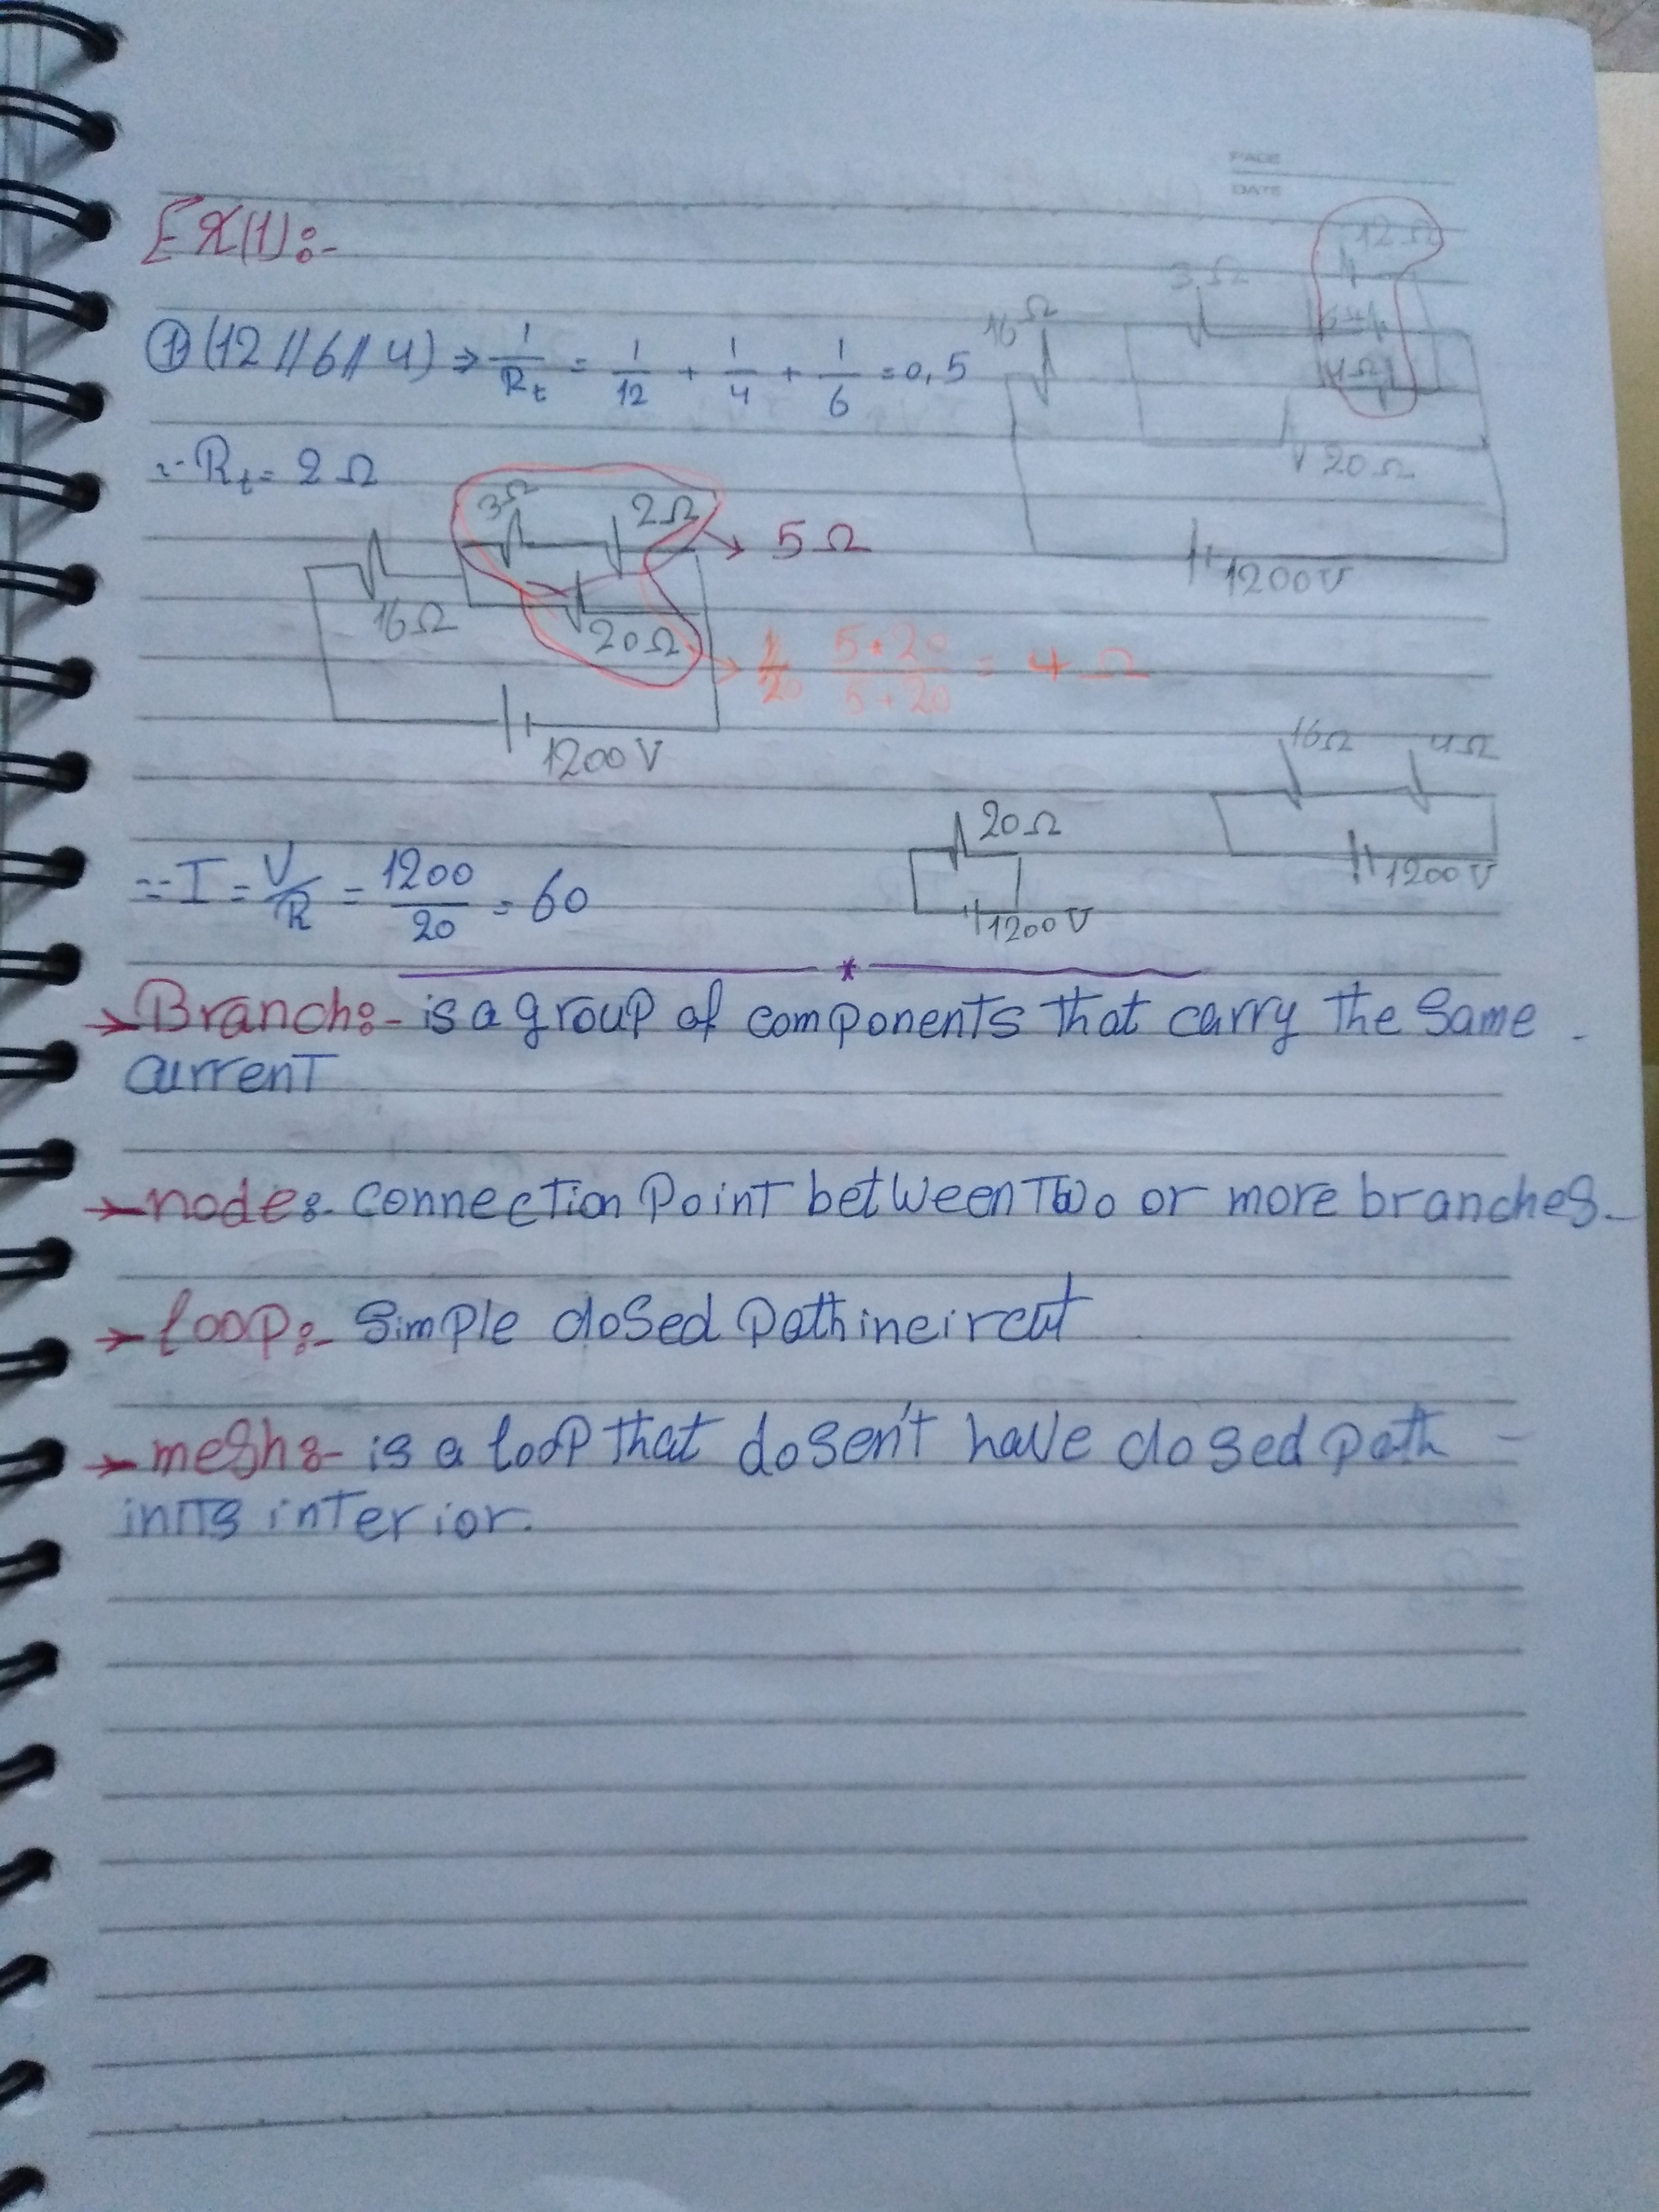 PAGE
DATE
EX(1):-
12Ω
3Ω
16Ω
① (12//6//4) ⇒ 1/Rt = 1/12 + 1/4 + 1/6 = 0,5
4Ω
20Ω
∴ Rt = 2Ω
3Ω 2Ω → 5Ω
1200V
16Ω
20Ω → 5*20/5+20 = 4Ω
1200V
16Ω 4Ω
20Ω
1200V
1200V
∴ I = V/R = 1200/20 = 60
*
→ Branch:- is a group of components that carry the same
current
→ node:- connection point between two or more branches
→ loop:- simple closed path in circut
→ mesh:- is a loop that dosen't have closed path
in its interior.